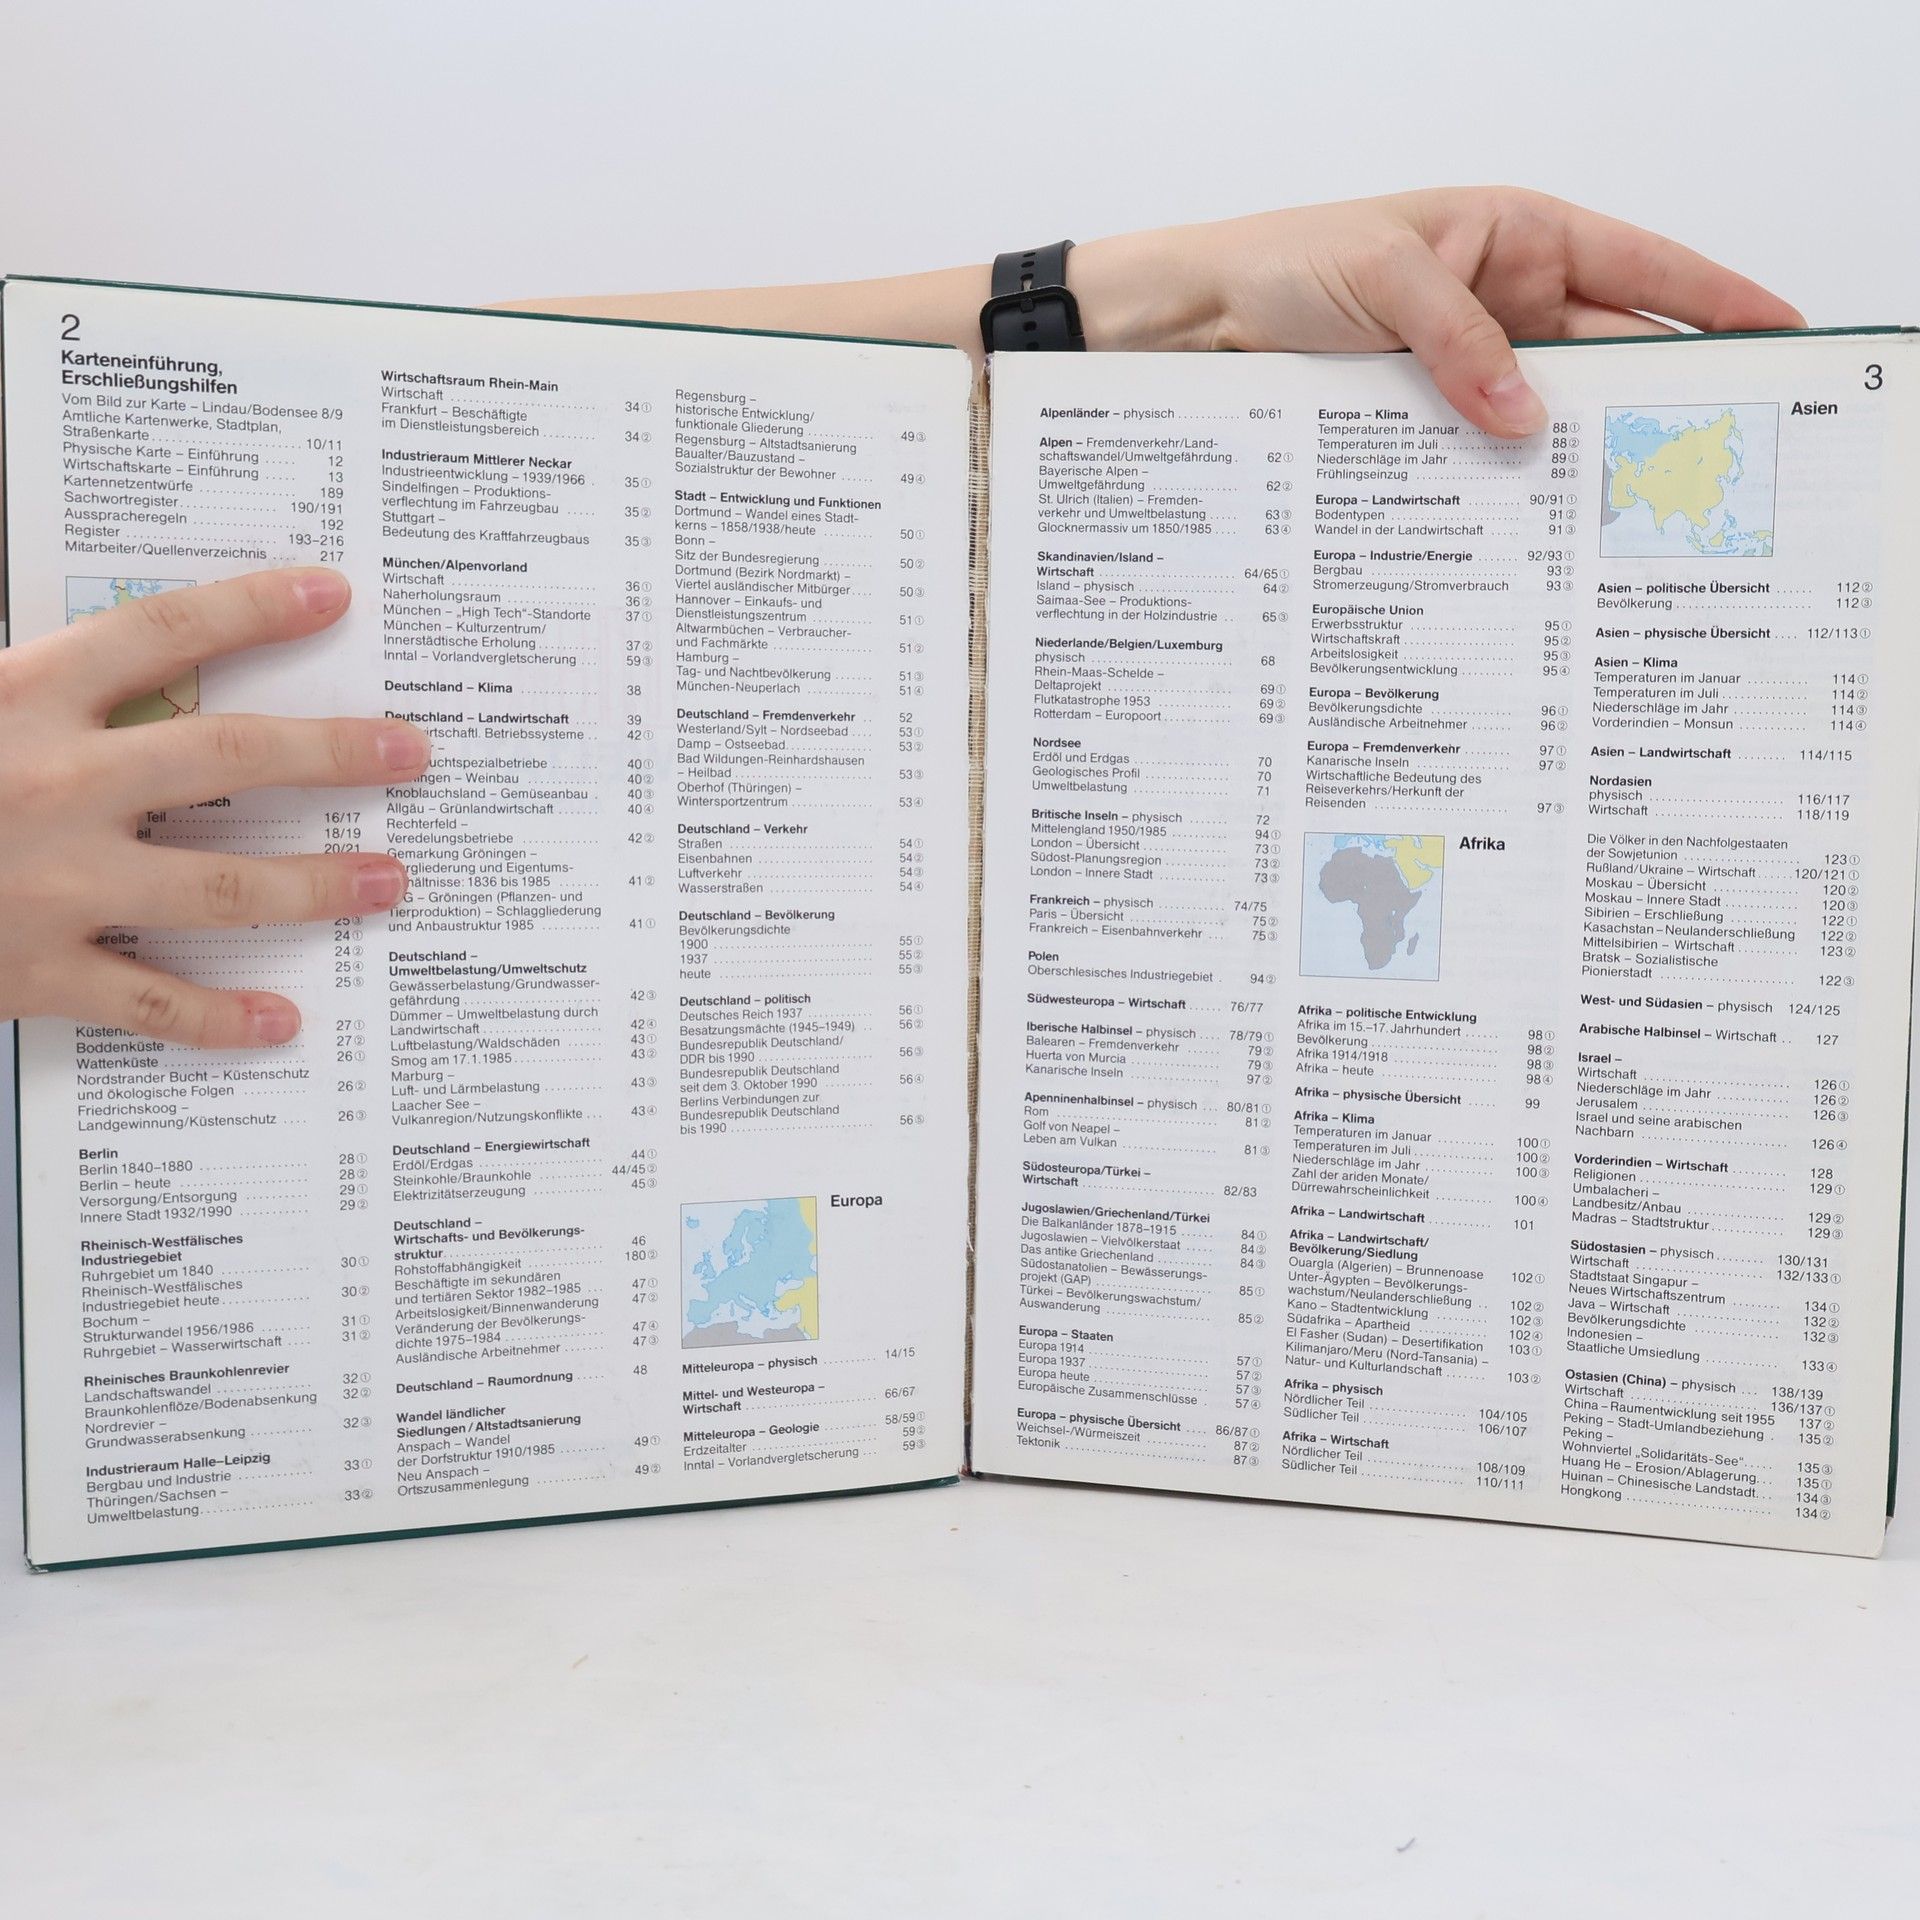 2
Karteneinführung,
Erschließungshilfen
Vom Bild zur Karte – Lindau/Bodensee 8/9
Amtliche Kartenwerke, Stadtplan,
Straßenkarte 10/11
Physische Karte – Einführung 12
Wirtschaftskarte – Einführung 13
Kartennetzentwürfe 189
Sachwortregister 190/191
Ausspracheregeln 192
Register 193–216
Mitarbeiter/Quellenverzeichnis 217
Teil 16/17
18/19
20/21
25③
24①
24②
25④
25⑤
27①
Boddenküste 27②
Wattenküste 26①
Nordstrander Bucht – Küstenschutz
und ökologische Folgen 26②
Friedrichskoog –
Landgewinnung/Küstenschutz 26③
Berlin
Berlin 1840–1880 28①
Berlin – heute 28②
Versorgung/Entsorgung 29①
Innere Stadt 1932/1990 29②
Rheinisch-Westfälisches
Industriegebiet
Ruhrgebiet um 1840 30①
Rheinisch-Westfälisches
Industriegebiet heute 30②
Bochum –
Strukturwandel 1956/1986 31①
Ruhrgebiet – Wasserwirtschaft 31②
Rheinisches Braunkohlenrevier
Landschaftswandel 32①
Braunkohlenflöze/Bodenabsenkung 32②
Nordrevier –
Grundwasserabsenkung 32③
Industrieraum Halle–Leipzig
Bergbau und Industrie 33①
Thüringen/Sachsen –
Umweltbelastung 33②
Wirtschaftsraum Rhein-Main
Wirtschaft 34①
Frankfurt – Beschäftigte
im Dienstleistungsbereich 34②
Industrieraum Mittlerer Neckar
Industrieentwicklung – 1939/1966 35①
Sindelfingen – Produktions-
verflechtung im Fahrzeugbau 35②
Stuttgart –
Bedeutung des Kraftfahrzeugbaus 35③
München/Alpenvorland
Wirtschaft 36①
Naherholungsraum 36②
München – „High Tech“-Standorte 37①
München – Kulturzentrum/
Innerstädtische Erholung 37②
Inntal – Vorlandvergletscherung 59③
Deutschland – Klima 38
Deutschland – Landwirtschaft 39
Betriebssysteme 42①
40①
Weinbau 40②
Knoblauchsland – Gemüseanbau 40③
Allgäu – Grünlandwirtschaft 40④
Rechterfeld –
Veredelungsbetriebe 42②
Gemarkung Gröningen –
und Eigentums-
1836 bis 1985 41②
Gröningen (Pflanzen- und
Tierproduktion) – Schlaggliederung
und Anbaustruktur 1985 41①
Deutschland –
Umweltbelastung/Umweltschutz
Gewässerbelastung/Grundwasser-
gefährdung 42③
Dümmer – Umweltbelastung durch
Landwirtschaft 42④
Luftbelastung/Waldschäden 43①
Smog am 17.1.1985 43②
Marburg –
Luft- und Lärmbelastung 43③
Laacher See –
Vulkanregion/Nutzungskonflikte 43④
Deutschland – Energiewirtschaft
Erdöl/Erdgas 44①
Steinkohle/Braunkohle 44/45②
Elektrizitätserzeugung 45③
Deutschland –
Wirtschafts- und Bevölkerungs-
struktur 46
Rohstoffabhängigkeit 180②
Beschäftigte im sekundären
und tertiären Sektor 1982–1985 47①
Arbeitslosigkeit/Binnenwanderung 47②
Veränderung der Bevölkerungs-
dichte 1975–1984 47④
Ausländische Arbeitnehmer 47③
Deutschland – Raumordnung 48
Wandel ländlicher
Siedlungen / Altstadtsanierung
Anspach – Wandel
der Dorfstruktur 1910/1985 49①
Neu Anspach –
Ortszusammenlegung 49②
Regensburg –
historische Entwicklung/
funktionale Gliederung 49③
Regensburg – Altstadtsanierung
Baualter/Bauzustand –
Sozialstruktur der Bewohner 49④
Stadt – Entwicklung und Funktionen
Dortmund – Wandel eines Stadt-
kerns – 1858/1938/heute 50①
Bonn –
Sitz der Bundesregierung 50②
Dortmund (Bezirk Nordmarkt) –
Viertel ausländischer Mitbürger 50③
Hannover – Einkaufs- und
Dienstleistungszentrum 51①
Altwarmbüchen – Verbraucher-
und Fachmärkte 51②
Hamburg –
Tag- und Nachtbevölkerung 51③
München-Neuperlach 51④
Deutschland – Fremdenverkehr 52
Westerland/Sylt – Nordseebad 53①
Damp – Ostseebad 53②
Bad Wildungen-Reinhardshausen
– Heilbad 53③
Oberhof (Thüringen) –
Wintersportzentrum 53④
Deutschland – Verkehr
Straßen 54①
Eisenbahnen 54②
Luftverkehr 54③
Wasserstraßen 54④
Deutschland – Bevölkerung
Bevölkerungsdichte
1900 55①
1937 55②
heute 55③
Deutschland – politisch
Deutsches Reich 1937 56①
Besatzungsmächte (1945–1949) 56②
Bundesrepublik Deutschland/
DDR bis 1990 56③
Bundesrepublik Deutschland
seit dem 3. Oktober 1990 56④
Berlins Verbindungen zur
Bundesrepublik Deutschland
bis 1990 56⑤
Europa
Mitteleuropa – physisch 14/15
Mittel- und Westeuropa –
Wirtschaft 66/67
Mitteleuropa – Geologie 58/59①
Erdzeitalter 59②
Inntal – Vorlandvergletscherung 59③
3
Alpenländer – physisch 60/61
Alpen – Fremdenverkehr/Land-
schaftswandel/Umweltgefährdung 62①
Bayerische Alpen –
Umweltgefährdung 62②
St. Ulrich (Italien) – Fremden-
verkehr und Umweltbelastung 63③
Glocknermassiv um 1850/1985 63④
Skandinavien/Island –
Wirtschaft 64/65①
Island – physisch 64②
Saimaa-See – Produktions-
verflechtung in der Holzindustrie 65③
Niederlande/Belgien/Luxemburg
physisch 68
Rhein-Maas-Schelde –
Deltaprojekt 69①
Flutkatastrophe 1953 69②
Rotterdam – Europoort 69③
Nordsee
Erdöl und Erdgas 70
Geologisches Profil 70
Umweltbelastung 71
Britische Inseln – physisch 72
Mittelengland 1950/1985 94①
London – Übersicht 73①
Südost-Planungsregion 73②
London – Innere Stadt 73③
Frankreich – physisch 74/75
Paris – Übersicht 75②
Frankreich – Eisenbahnverkehr 75③
Polen
Oberschlesisches Industriegebiet 94②
Südwesteuropa – Wirtschaft 76/77
Iberische Halbinsel – physisch 78/79①
Balearen – Fremdenverkehr 79②
Huerta von Murcia 79③
Kanarische Inseln 97②
Apenninenhalbinsel – physisch 80/81①
Rom 81②
Golf von Neapel –
Leben am Vulkan 81③
Südosteuropa/Türkei –
Wirtschaft 82/83
Jugoslawien/Griechenland/Türkei
Die Balkanländer 1878–1915 84①
Jugoslawien – Vielvölkerstaat 84②
Das antike Griechenland 84③
Südostanatolien – Bewässerungs-
projekt (GAP) 85①
Türkei – Bevölkerungswachstum/
Auswanderung 85②
Europa – Staaten
Europa 1914 57①
Europa 1937 57②
Europa heute 57③
Europäische Zusammenschlüsse 57④
Europa – physische Übersicht 86/87①
Weichsel-/Würmeiszeit 87②
Tektonik 87③
Europa – Klima
Temperaturen im Januar 88①
Temperaturen im Juli 88②
Niederschläge im Jahr 89①
Frühlingseinzug 89②
Europa – Landwirtschaft 90/91①
Bodentypen 91②
Wandel in der Landwirtschaft 91③
Europa – Industrie/Energie 92/93①
Bergbau 93②
Stromerzeugung/Stromverbrauch 93③
Europäische Union
Erwerbsstruktur 95①
Wirtschaftskraft 95②
Arbeitslosigkeit 95③
Bevölkerungsentwicklung 95④
Europa – Bevölkerung
Bevölkerungsdichte 96①
Ausländische Arbeitnehmer 96②
Europa – Fremdenverkehr 97①
Kanarische Inseln 97②
Wirtschaftliche Bedeutung des
Reiseverkehrs/Herkunft der
Reisenden 97③
Afrika
Afrika – politische Entwicklung
Afrika im 15.–17. Jahrhundert 98①
Bevölkerung 98②
Afrika 1914/1918 98③
Afrika – heute 98④
Afrika – physische Übersicht 99
Afrika – Klima
Temperaturen im Januar 100①
Temperaturen im Juli 100②
Niederschläge im Jahr 100③
Zahl der ariden Monate/
Dürrewahrscheinlichkeit 100④
Afrika – Landwirtschaft 101
Afrika – Landwirtschaft/
Bevölkerung/Siedlung
Ouargla (Algerien) – Brunnenoase 102①
Unter-Ägypten – Bevölkerungs-
wachstum/Neulanderschließung 102②
Kano – Stadtentwicklung 102③
Südafrika – Apartheid 102④
El Fasher (Sudan) – Desertifikation 103①
Kilimanjaro/Meru (Nord-Tansania) –
Natur- und Kulturlandschaft 103②
Afrika – physisch
Nördlicher Teil 104/105
Südlicher Teil 106/107
Afrika – Wirtschaft
Nördlicher Teil 108/109
Südlicher Teil 110/111
Asien
Asien – politische Übersicht 112②
Bevölkerung 112③
Asien – physische Übersicht 112/113①
Asien – Klima
Temperaturen im Januar 114①
Temperaturen im Juli 114②
Niederschläge im Jahr 114③
Vorderindien – Monsun 114④
Asien – Landwirtschaft 114/115
Nordasien
physisch 116/117
Wirtschaft 118/119
Die Völker in den Nachfolgestaaten
der Sowjetunion 123①
Rußland/Ukraine – Wirtschaft 120/121①
Moskau – Übersicht 120②
Moskau – Innere Stadt 120③
Sibirien – Erschließung 122①
Kasachstan – Neulanderschließung 122②
Mittelsibirien – Wirtschaft 123②
Bratsk – Sozialistische
Pionierstadt 122③
West- und Südasien – physisch 124/125
Arabische Halbinsel – Wirtschaft 127
Israel –
Wirtschaft 126①
Niederschläge im Jahr 126②
Jerusalem 126③
Israel und seine arabischen
Nachbarn 126④
Vorderindien – Wirtschaft 128
Religionen 129①
Umbalacheri –
Landbesitz/Anbau 129②
Madras – Stadtstruktur 129③
Südostasien – physisch 130/131
Wirtschaft 132/133①
Stadtstaat Singapur –
Neues Wirtschaftszentrum 134①
Java – Wirtschaft 132②
Bevölkerungsdichte 132③
Indonesien –
Staatliche Umsiedlung 133④
Ostasien (China) – physisch 138/139
Wirtschaft 136/137①
China – Raumentwicklung seit 1955 137②
Peking – Stadt-Umlandbeziehung 135②
Peking –
Wohnviertel „Solidaritäts-See“ 135③
Huang He – Erosion/Ablagerung 135①
Huinan – Chinesische Landstadt 134③
Hongkong 134②